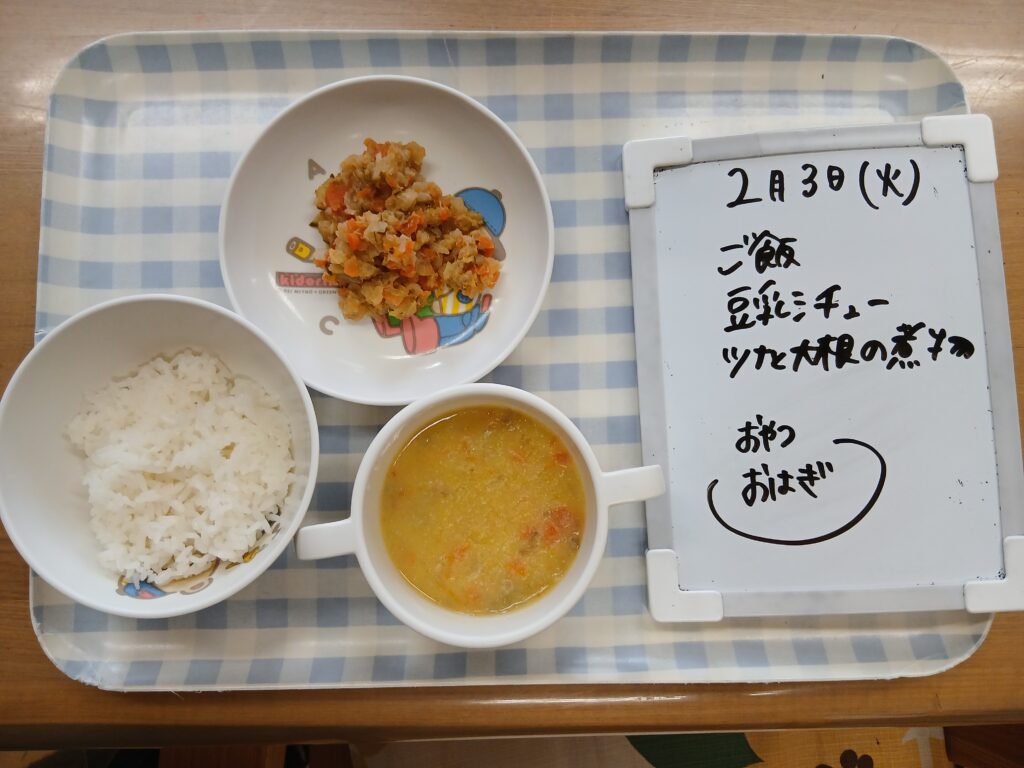 A
kidorik
C
2月3日(火)
ご飯
豆乳シチュー
ツナと大根の煮物
おやつ
おはぎ